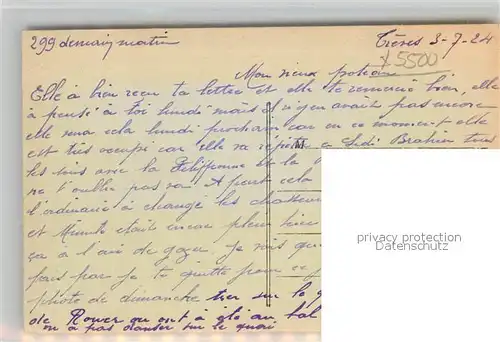 299 demain matin
Trèves 3-7-24
5500
Mon vieux poteau
Elle à bien reçu ta lettre et elle te remercie bien, elle
à pensé à toi lundi mais n'y en avait pas encore
elle sera cela lundi prochain car en ce moment elle
est très occupé car elle va répéter à Sidi Brahim tous
les soirs avec la et la
ne t'oublie pas va. A part cela
l'ordinaire à changé les chasseurs
et était encore plein hier
ça à l'air de gazer. Je vois que
pas je te quitte pour
photo de dimanche hier sur la
de on ont à été au bal
on a pas danser sur le quai
privacy protection
Datenschutz